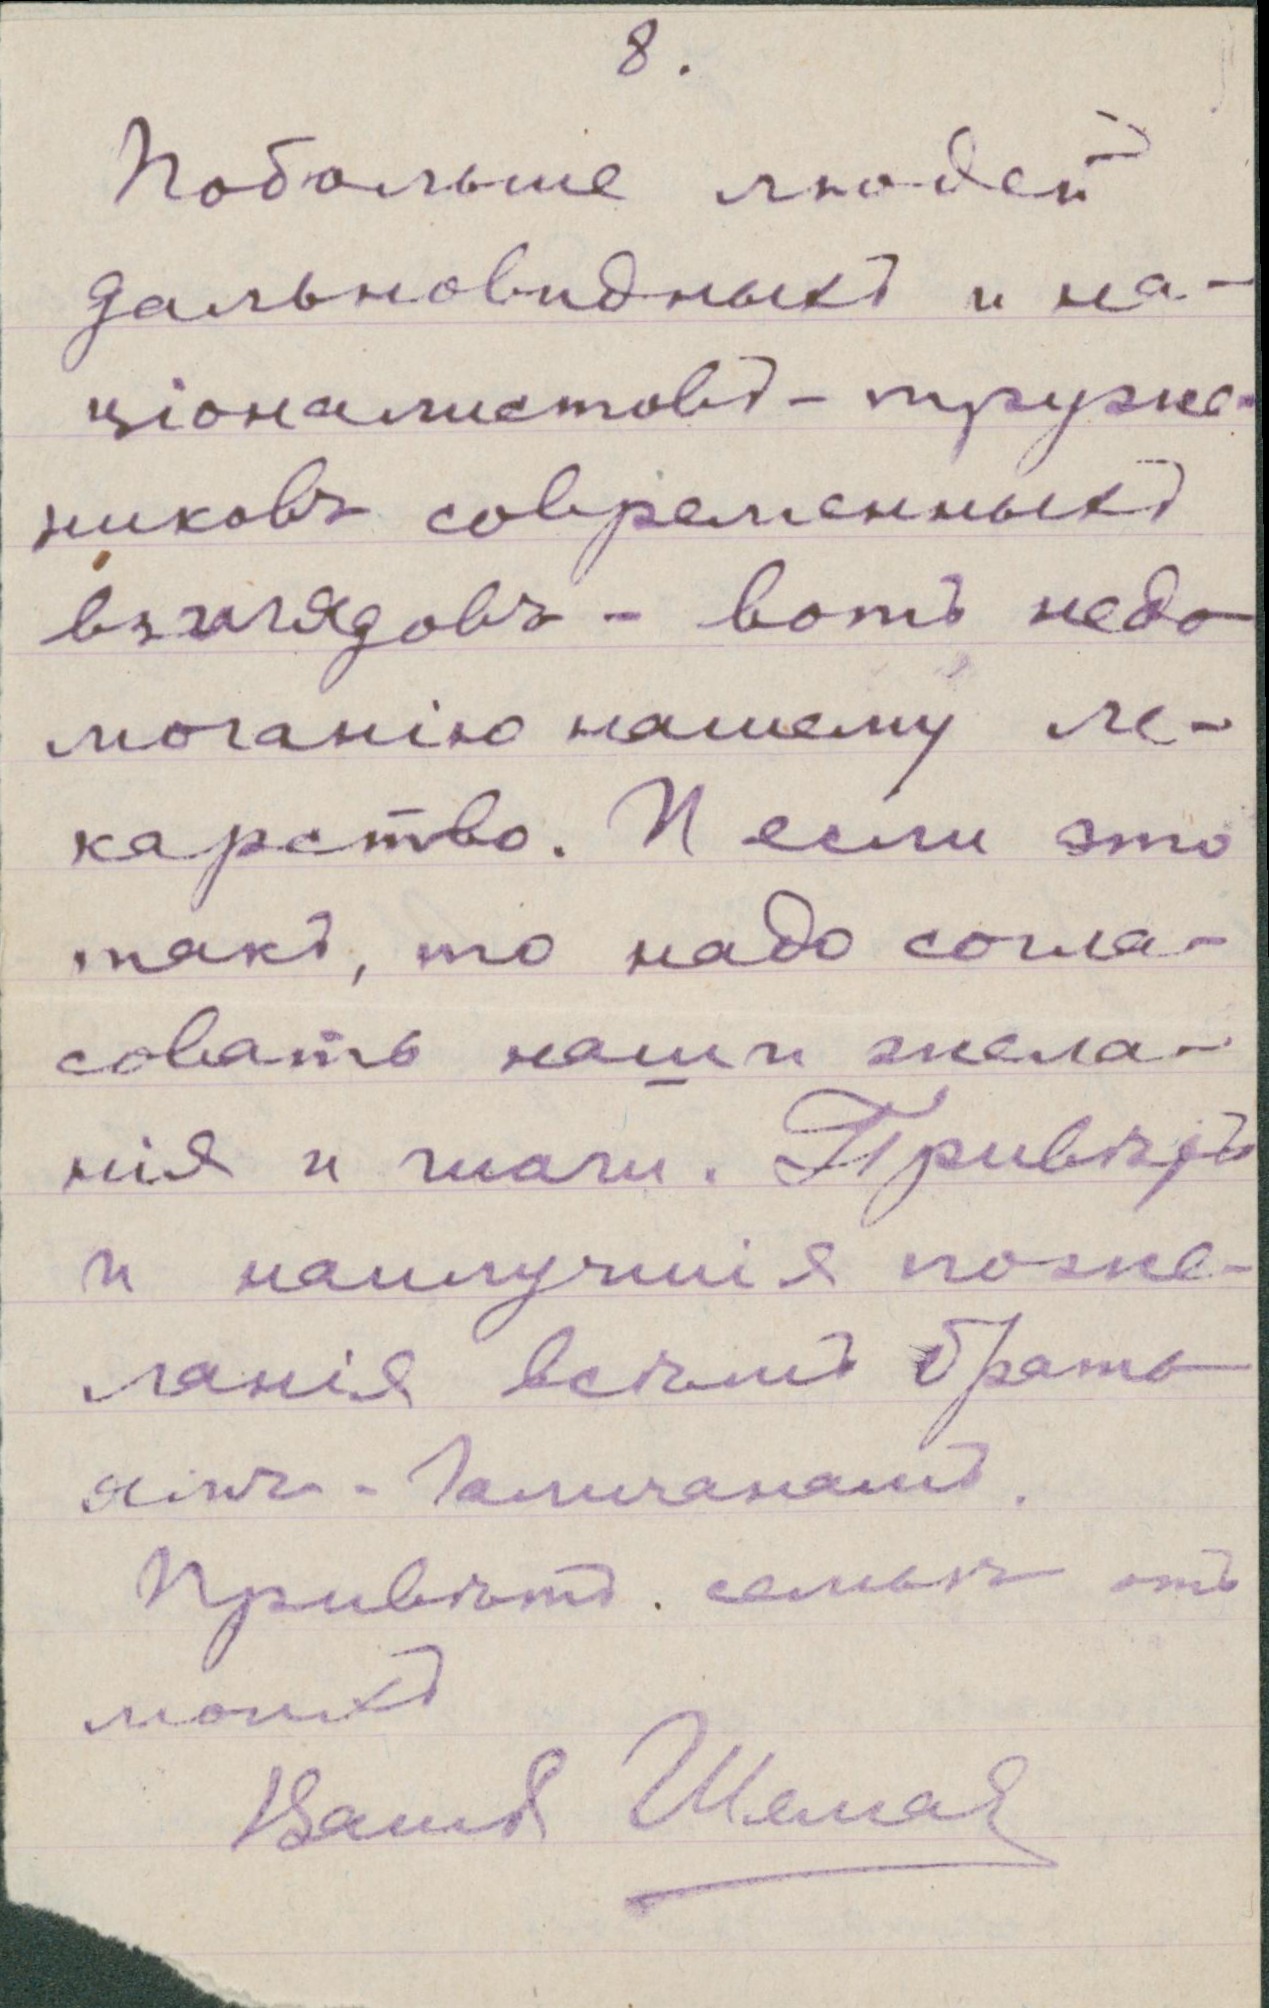 8.
Побольше людей
дальновидныхъ и на-
ціоналистовъ - труже-
никовъ современныхъ
взглядовъ - вотъ недо
моганію нашему ле-
карство. И если это
такъ, то надо согла-
совать наши жела-
нія и шаги. Привѣтъ
и наилучшія поже-
ланія всѣмъ брать
ямъ - Галичанамъ.
Привѣтъ семьѣ отъ
моихъ
Вашъ